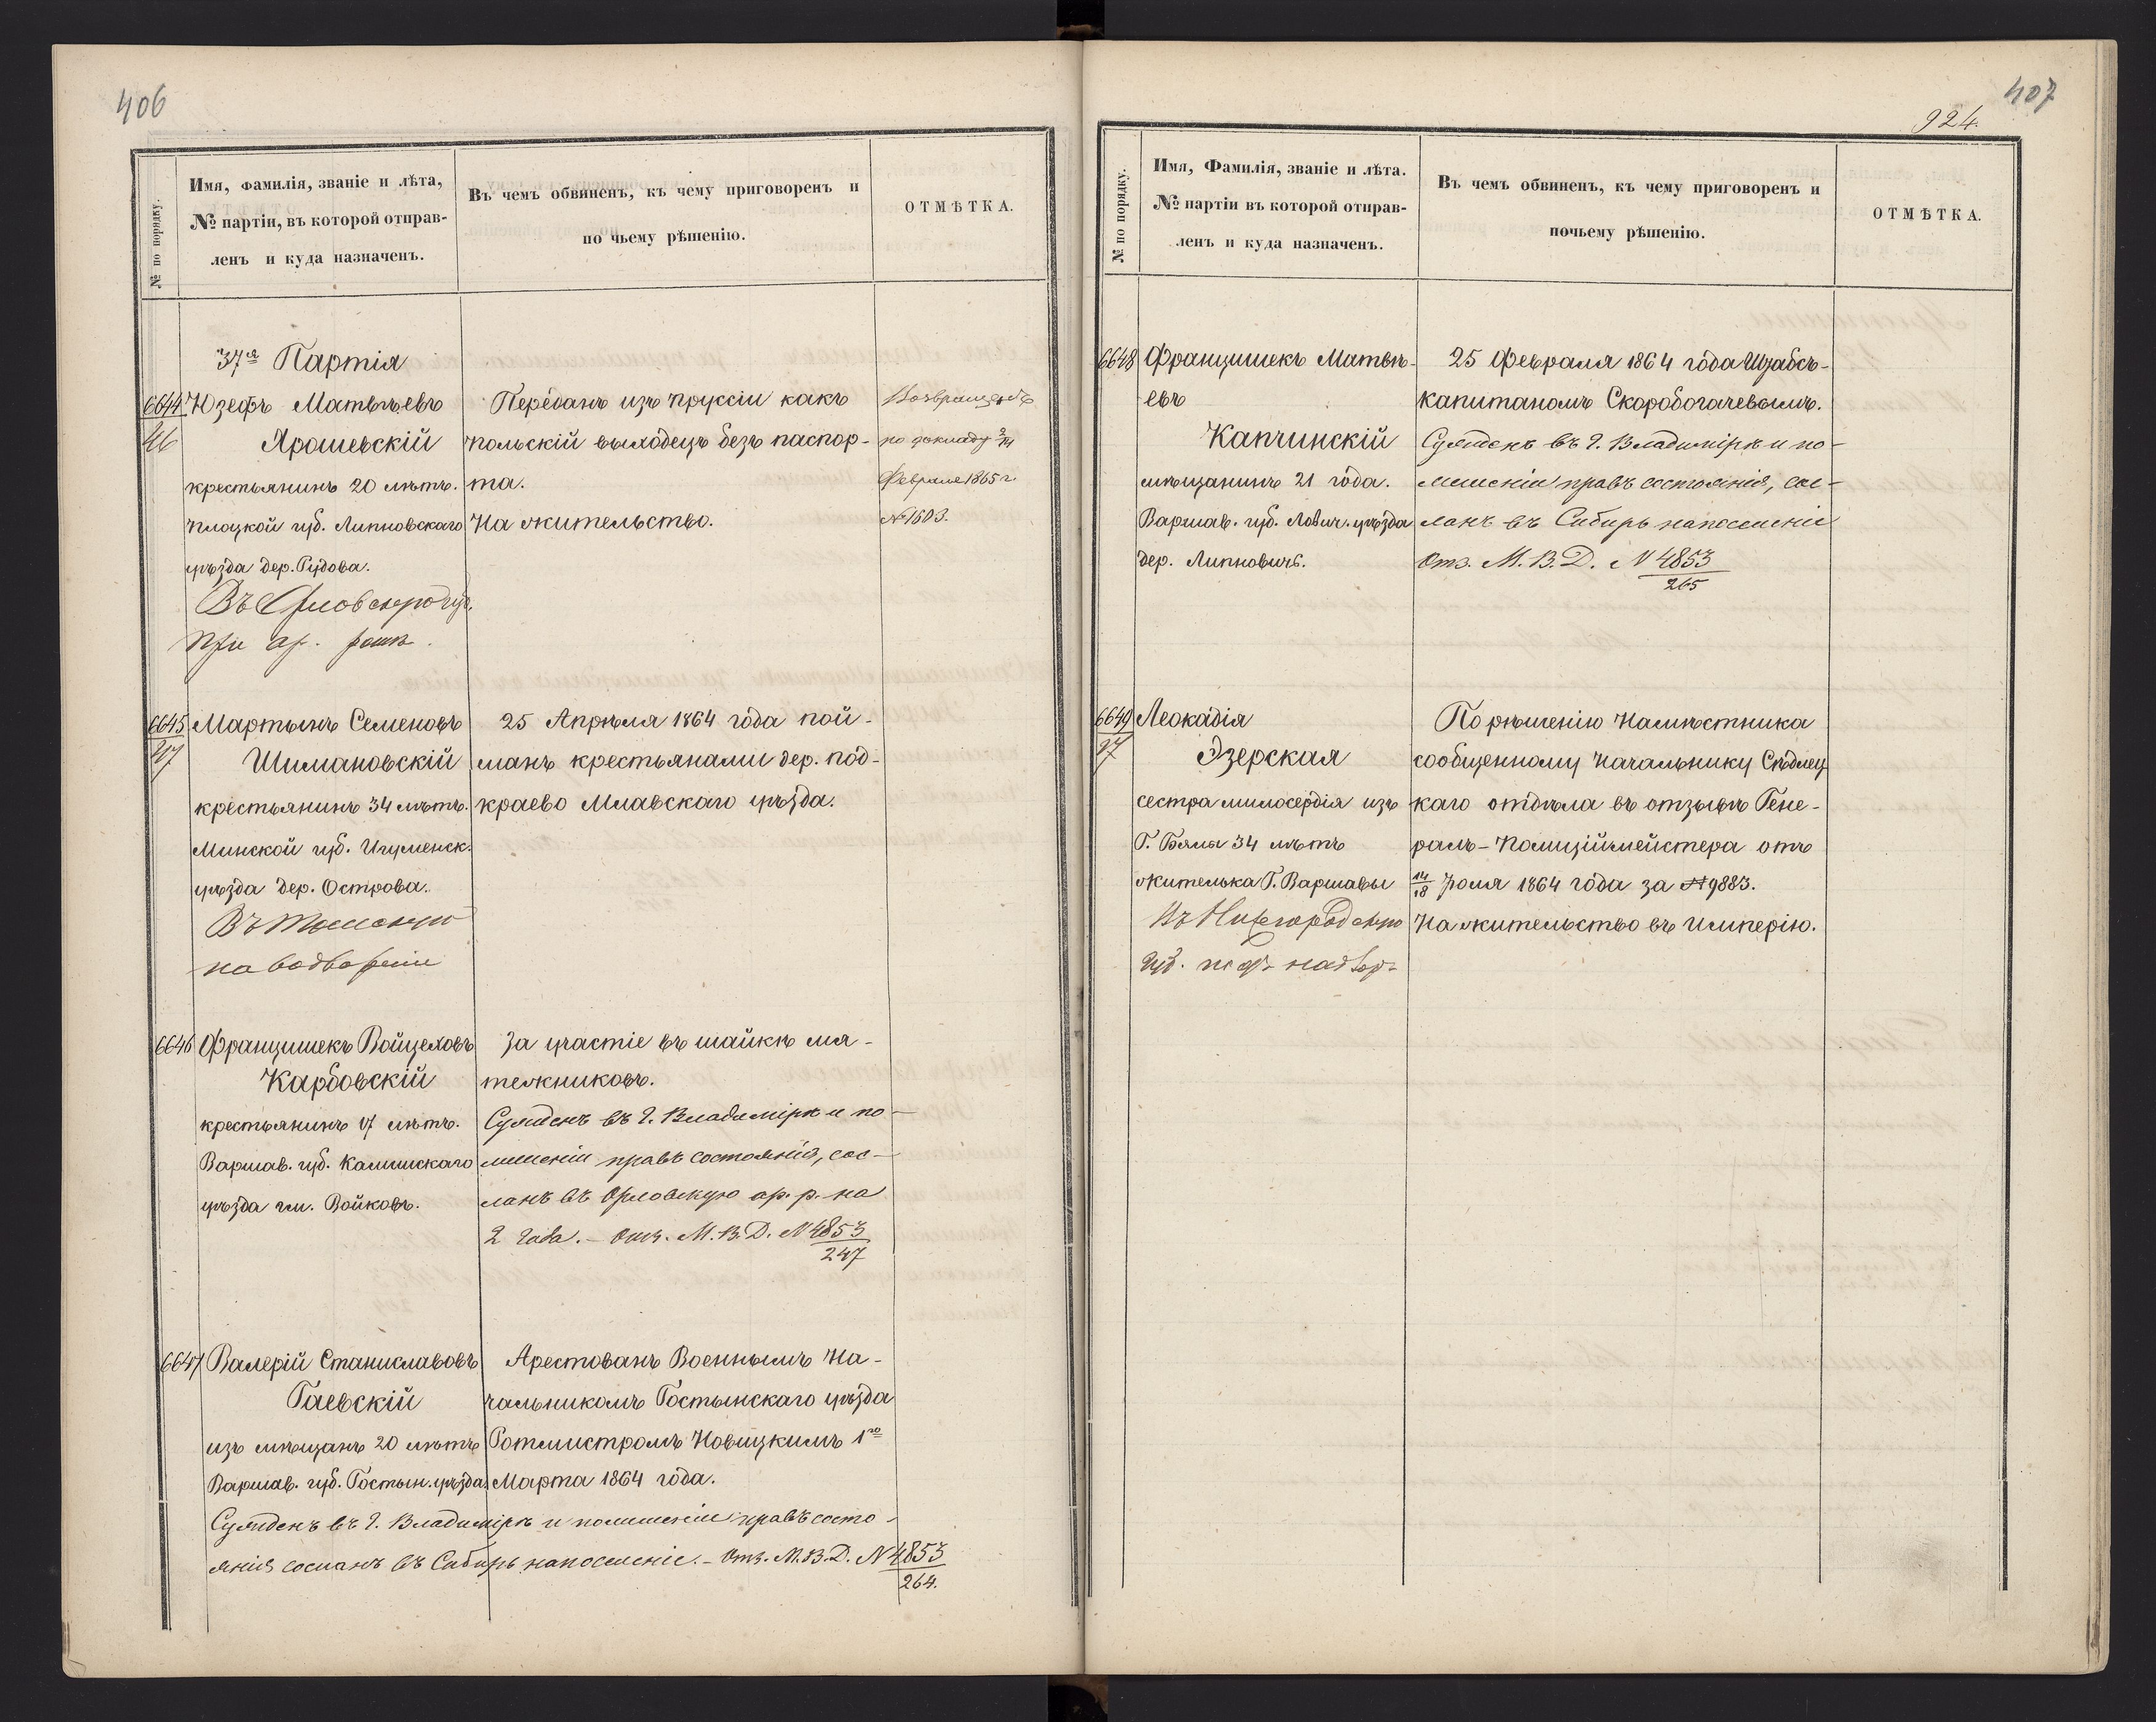 406
№ по порядку.
Имя, Фамилія, званіе и лѣта,
№ партіи, въ которой отправ-
ленъ и куда назначенъ.
Въ чемъ обвиненъ, къ чему приговоренъ и
по чьему рѣшенію.
ОТМѢТКА.
37я Партія
6644
46
Юзефъ Матвѣевъ
Ярошевскій
крестьянинъ 20 лѣтъ.
Плоцкой губ. Липновскаго
уѣзда дер. Рудова.
Въ Орловскую губ.
при ар. ротѣ.
Переданъ изъ Пруссіи какъ
польскій выходецъ безъ паспор-
та.
На жительство.
Возвращенъ
по докладу 2/14
Февраля 1865 г.
№ 1603.
6645
47
Мартынъ Семеновъ
Шимановскій
крестьянинъ 34 лѣтъ.
Минской губ. Игуменск.
уѣзда дер. Острова.
Въ Томскую
на водвореніе
25 Апрѣля 1864 года пой-
манъ крестьянами дер. под-
краево Млавскаго уѣзда.
6646
Францишекъ Войцеховъ
Карбовскій
крестьянинъ 17 лѣтъ.
Варшав. губ. Калишскаго
уѣзда гм. Войковъ.
За участіе въ шайкѣ мя-
тежниковъ.
Сужденъ въ г. Владимірѣ и по
лишеніи правъ состоянія, сос-
ланъ въ Орловскую ар. р. на
2 года. – Отз. М. В. Д. N 4853
247
6647
Валерій Станиславовъ
Гаевскій
изъ мѣщанъ 20 лѣтъ
Варшав. губ. Гостын. уѣзда.
Арестованъ Военнымъ На-
чальникомъ Гостынскаго уѣзда
Ротмистромъ Новицкимъ 1го
Марта 1864 года.
Сужденъ въ г. Владимірѣ и по лишеніи правъ состо-
янія сосланъ въ Сибирь на поселеніе. – Отз. М. В. Д. N 4853
264.
407
924.
№ по порядку.
Имя, Фамилія, званіе и лѣта.
№ партіи въ которой отправ-
ленъ и куда назначенъ.
Въ чемъ обвиненъ, къ чему приговоренъ и
почьему рѣшенію.
ОТМѢТКА.
6648
Францишекъ Матвѣ-
евъ
Капчинскій
мѣщанинъ 21 года.
Варшав. губ. Лович. уѣзда
дер. Липновичъ.
25 Февраля 1864 года Штабсъ-
капитаномъ Скоробогачевымъ.
Сужденъ въ г. Владимірѣ и по
лишеніи правъ состоянія, сос-
ланъ въ Сибирь на поселеніе
Отз. М. В. Д. N 4853
265
6649
97
Леокадія
Эзерская
сестра милосердія изъ
Г. Бялы 34 лѣтъ
жителька Г. Варшавы
Въ Нижегородскую
губ. под. надзор.
По рѣшенію Намѣстника
сообщенному начальнику Сѣдлец
каго отдѣла въ отзывѣ Гене-
ралъ-Полиціймейстера отъ
14/18 Іюля 1864 года за № 9883.
На жительство въ Имперію.